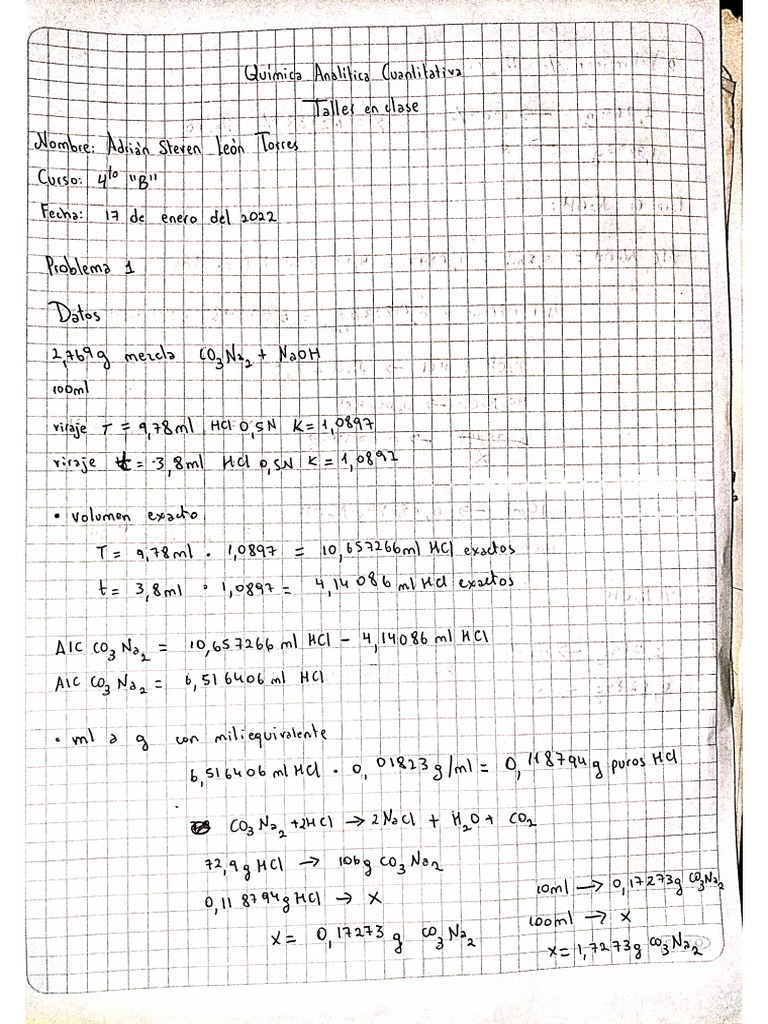 Química Analítica Cuantitativa
Taller en clase
Nombre: Adrián Steven León Torres
Curso: 4to "B"
Fecha: 17 de enero del 2022
Problema 1
Datos
2,769g mezcla CO3Na2 + NaOH
100ml
viraje T = 9,78ml HCl 0,5N K = 1,0897
viraje t = 3,8ml HCl 0,5N K = 1,0897
• volumen exacto
T = 9,78ml . 1,0897 = 10,657266ml HCl exactos
t = 3,8ml . 1,0897 = 4,14086 ml HCl exactos
Alc CO3Na2 = 10,657266 ml HCl - 4,14086 ml HCl
Alc CO3Na2 = 6,516406 ml HCl
• ml a g con miliequivalente
6,516406 ml HCl . 0,01823 g/ml = 0,118794 g puros HCl
CO3Na2 + 2HCl → 2NaCl + H2O + CO2
72,9 g HCl → 106g CO3Na2
0,118794g HCl → x
x = 0,17273 g CO3Na2
10ml → 0,17273g CO3Na2
100ml → x
x = 1,7273g CO3Na2